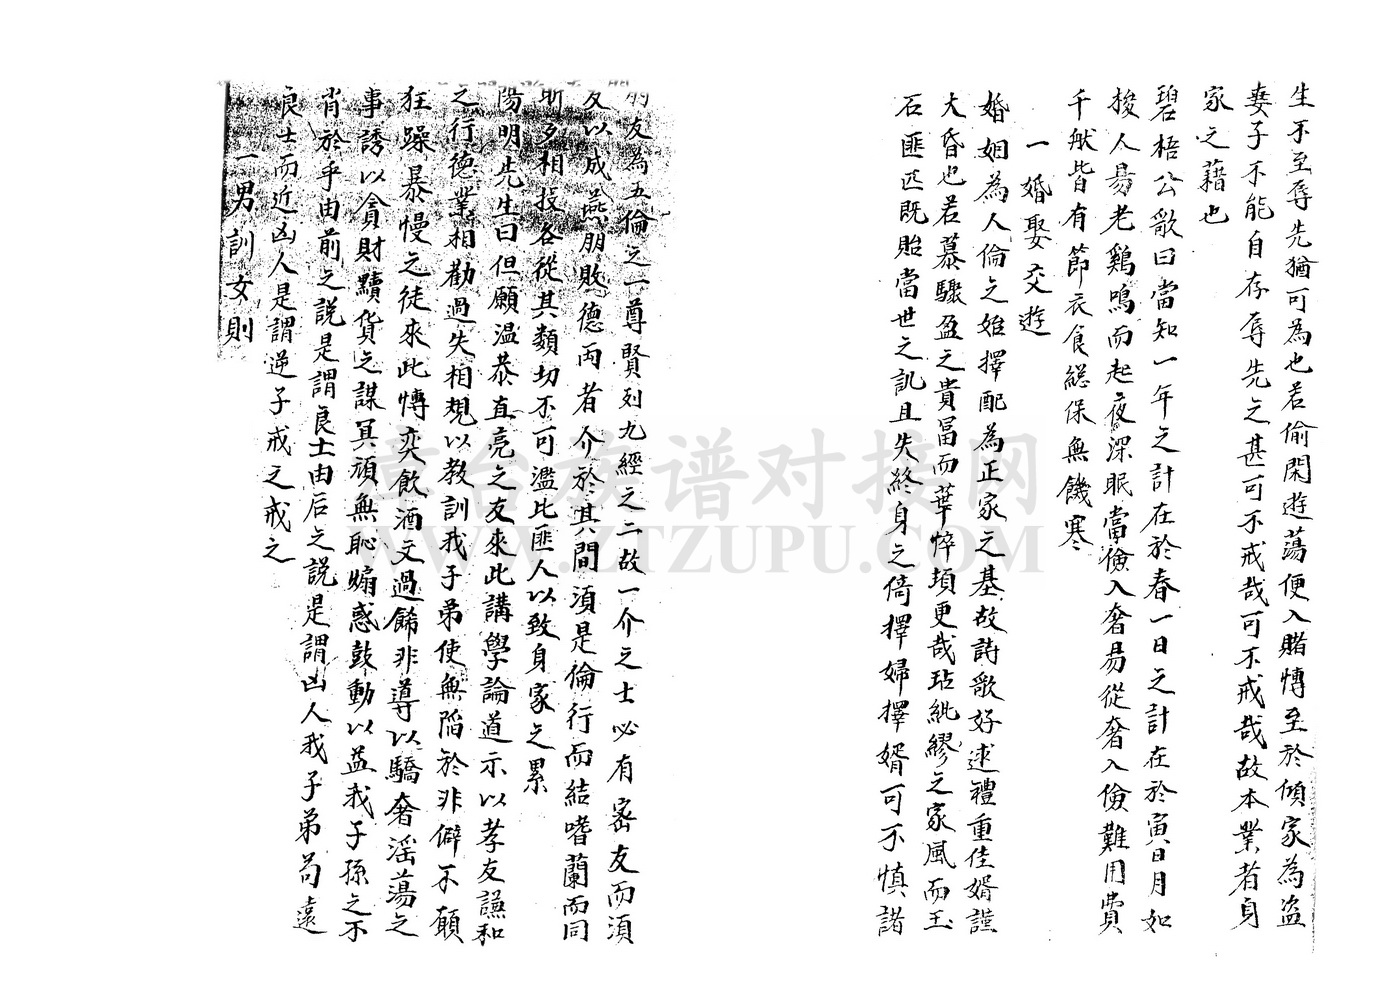 生不至辱先猶可為也若偷閑遊蕩便入賭慱至於傾家為盜
妻子不能自存辱先之甚可不戒哉可不戒哉故本業者身
家之藉也
碧梧公歌曰當知一年之計在於春一日之計在於寅日月如
梭人易老鷄鳴而起夜深眠當儉入奢易從奢入儉難用費
千般皆有節衣食緃保無饑寒
一婚娶交遊
婚姻為人倫之始擇配為正家之基故詩歌好逑禮重佳婿謹
大昏也若慕驟盈之貴冨而華悴頃更哉玷紕繆之家風而玉
石匪匹既貽當世之訕且失終身之倚擇婦擇婿可不慎諸
朋友為五倫之一尊賢列九經之二故一介之士必有宻友而須
友以成燕朋敗德兩者介於其間須是倫行而結嗜蘭而同
斯多相投各從其類切不可濫比匪人以致身家之累
陽明先生曰但願温恭直亮之友來此講學論道示以孝友謙和
之行德業相勸過失相規以教訓我子弟使無陷於非僻不願
狂躁暴慢之徒來此慱奕飲酒文過餙非導以驕奢淫蕩之
事誘以貪財黷貨之謀冥頑無恥煽惑鼓動以益我子孫之不
肖於乎由前之説是謂良士由后之説是謂凶人我子弟苟遠
良士而近凶人是謂逆子戒之戒之
一男訓女則
章台族谱对接网
WWW.ZTZUPU.COM